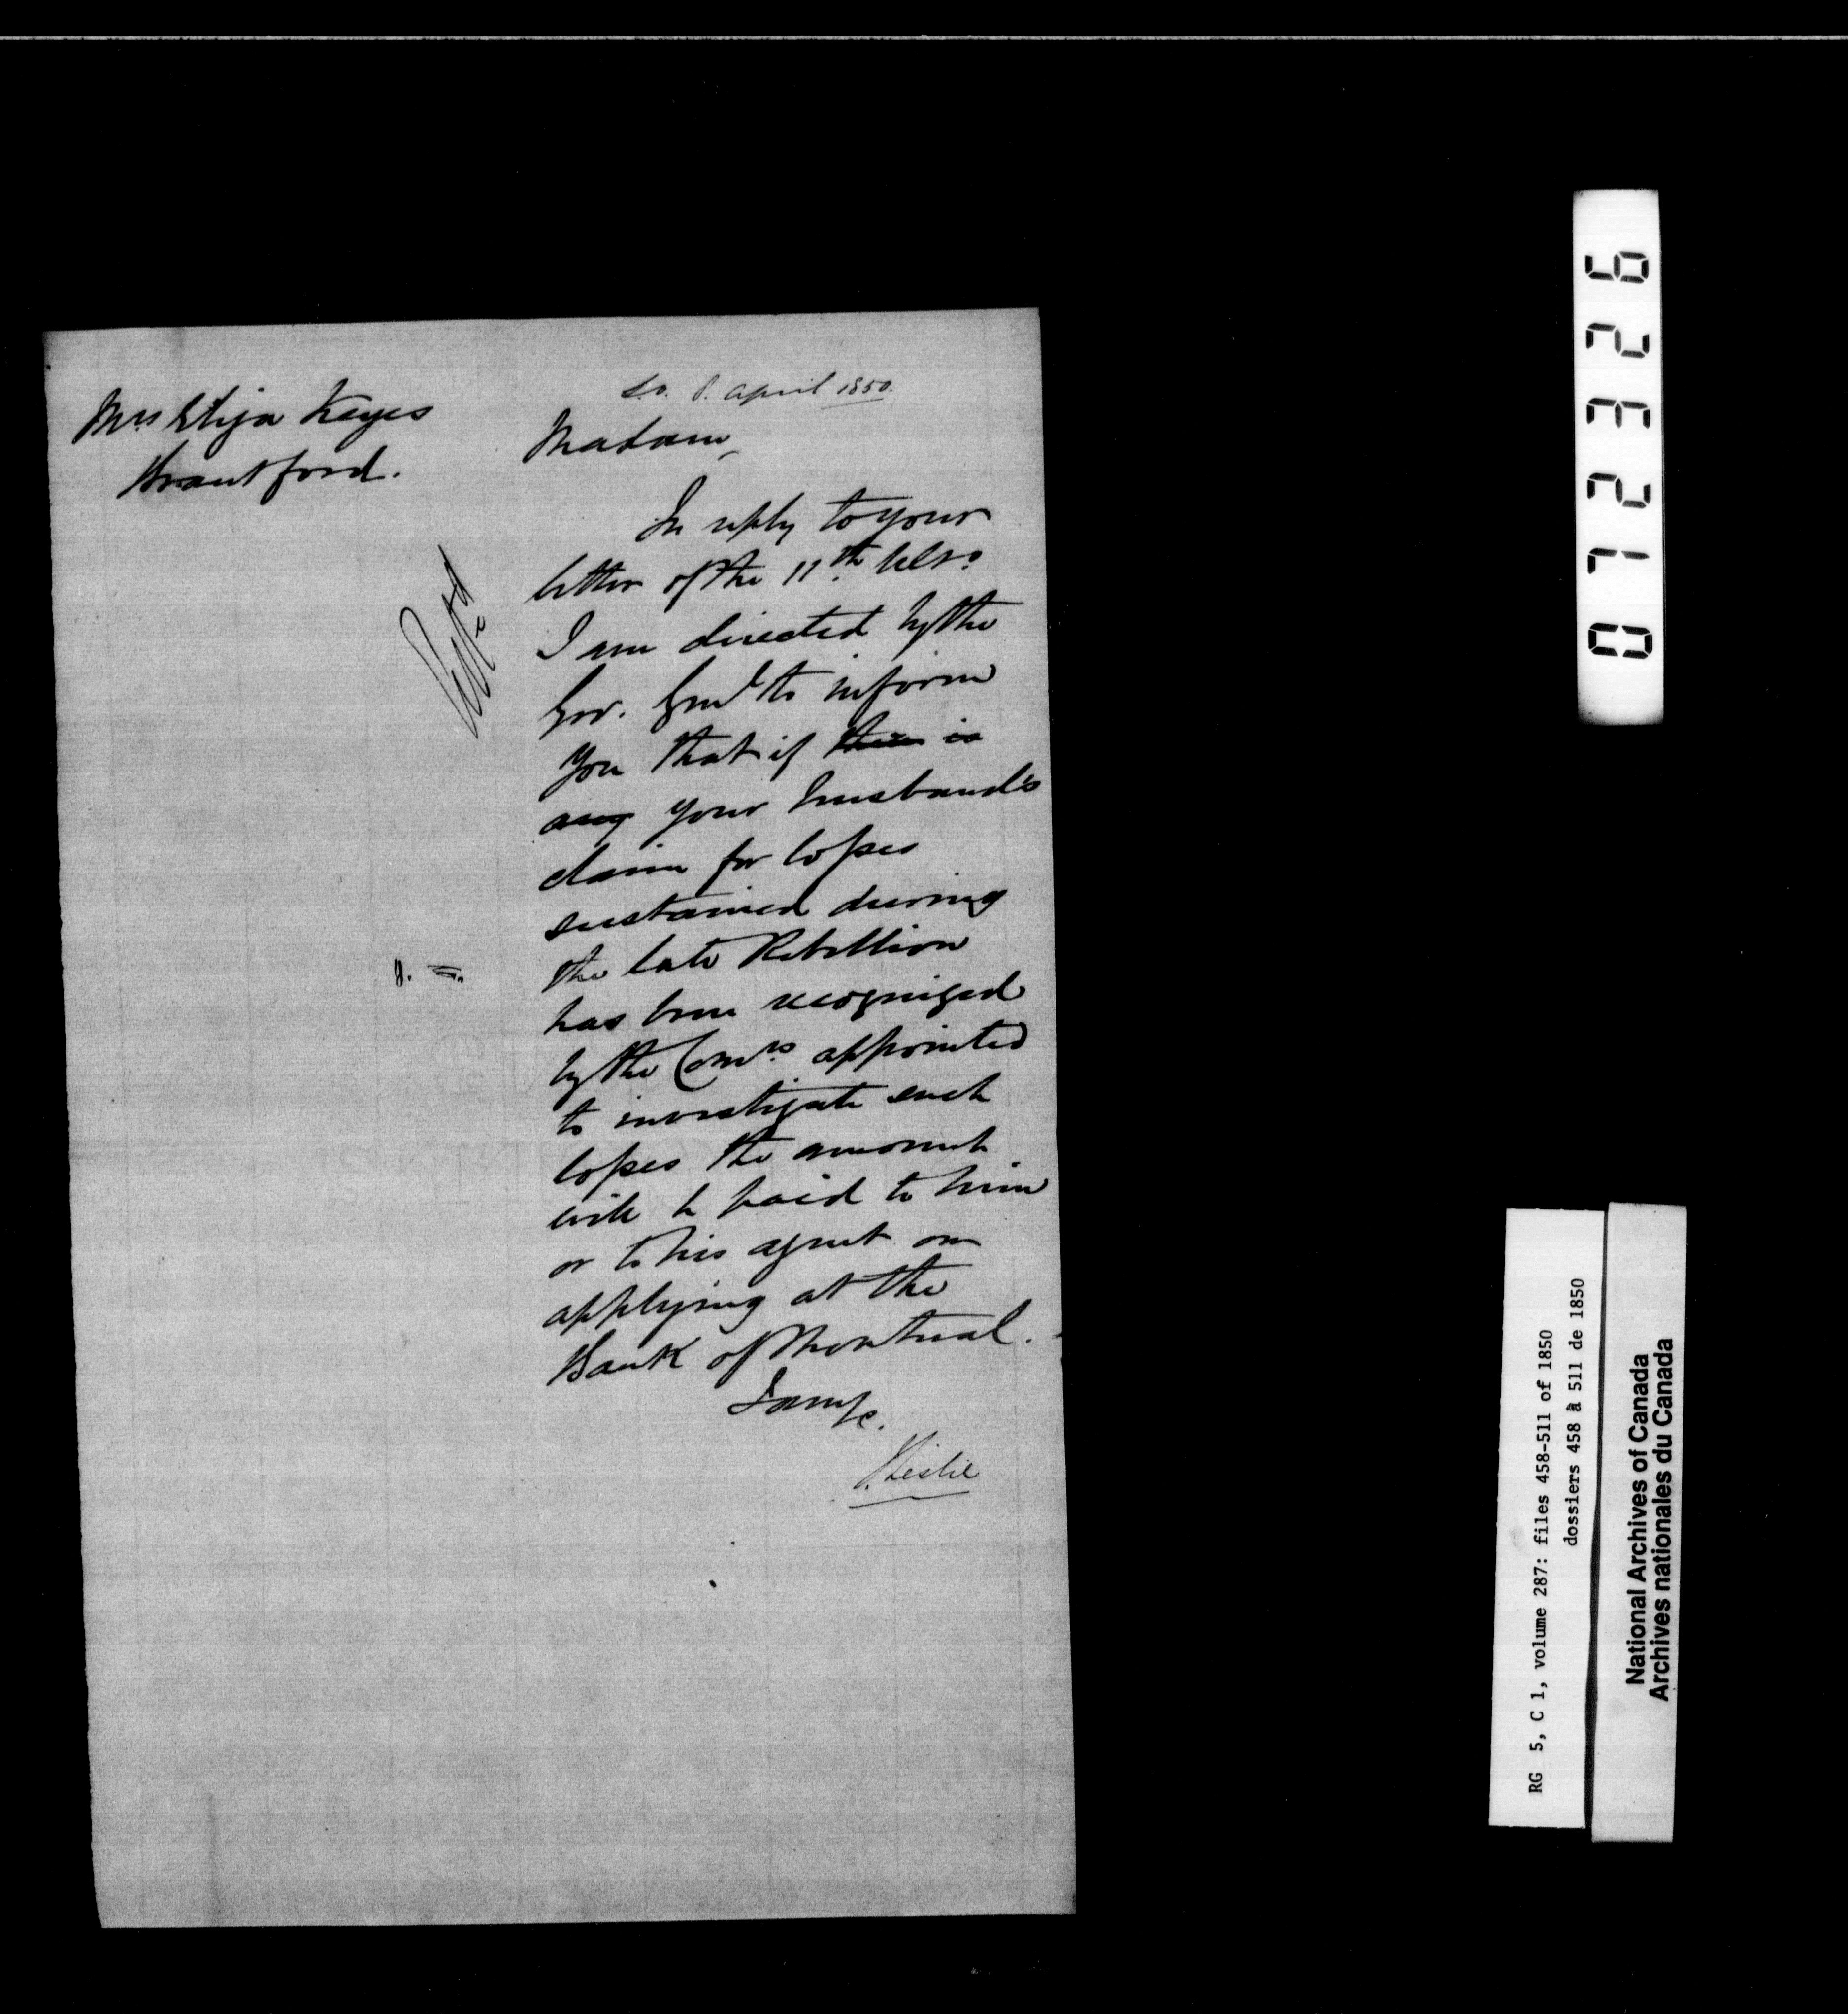 Mrs Elija Keyes
Brantford.
S.O. 8. April 1850.
Madam,
In reply to your
letter of the 11th. Ulto.
I am directed by the
Gov. Genl to inform
you that if there is
any your husband's
claim for losses
sustained during
the late Rebellion
has been recognized
by the Comrs. appointed
to investigate such
losses the amount
will be paid to him
or to his agent on
applying at the
Bank of Montreal.
I am &c.
J. Leslie
072326
RG 5, C 1, volume 287: files 458-511 of 1850
dossiers 458 à 511 de 1850
National Archives of Canada
Archives nationales du Canada